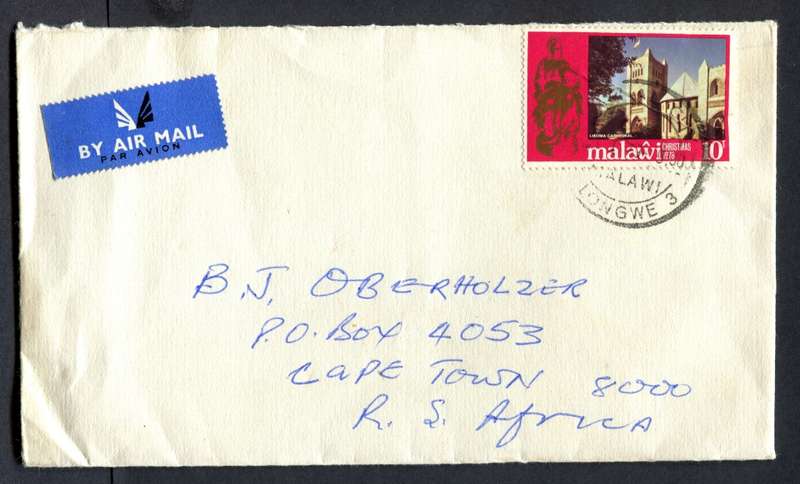 BY AIR MAIL
PAR AVION
LIKOMA CATHEDRAL
malaŵi CHRISTMAS 1978 10t
MALAWI
LILONGWE 3
B.J. OBERHOLZER
P.O. BOX 4053
CAPE TOWN 8000
R. S. Africa